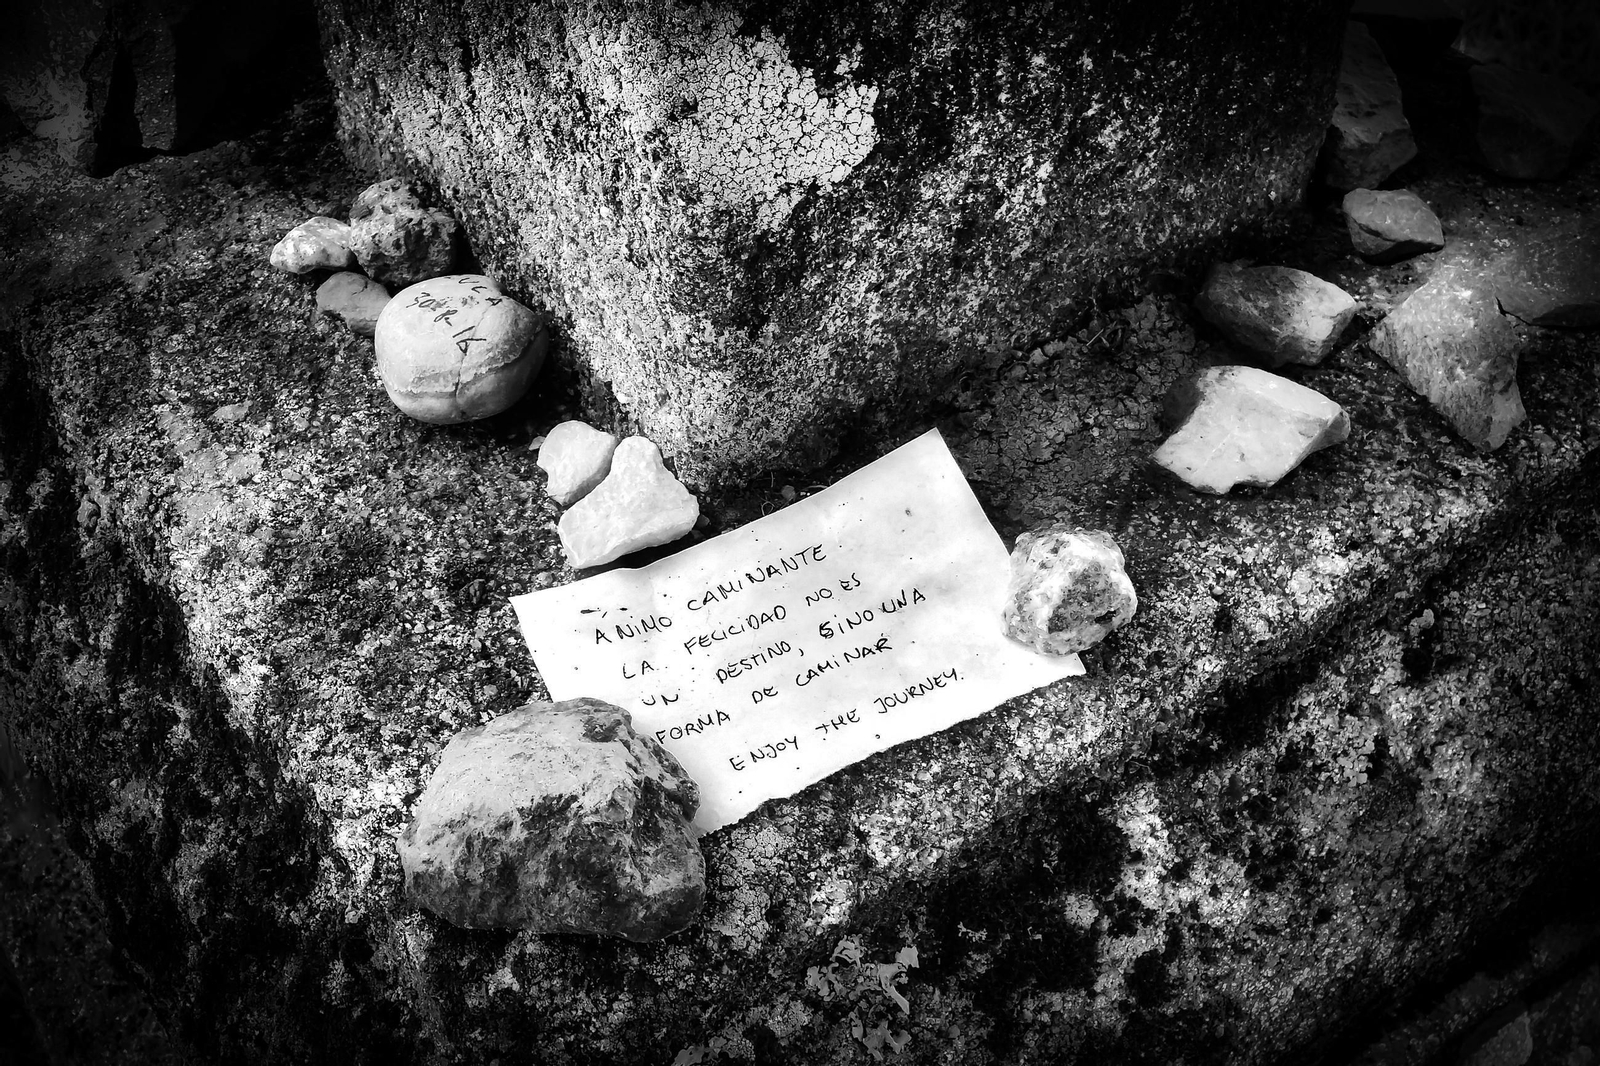 ÁNIMO CAMINANTE
LA FELICIDAD NO ES
UN DESTINO, SINO UNA
FORMA DE CAMINAR
ENJOY THE JOURNEY.